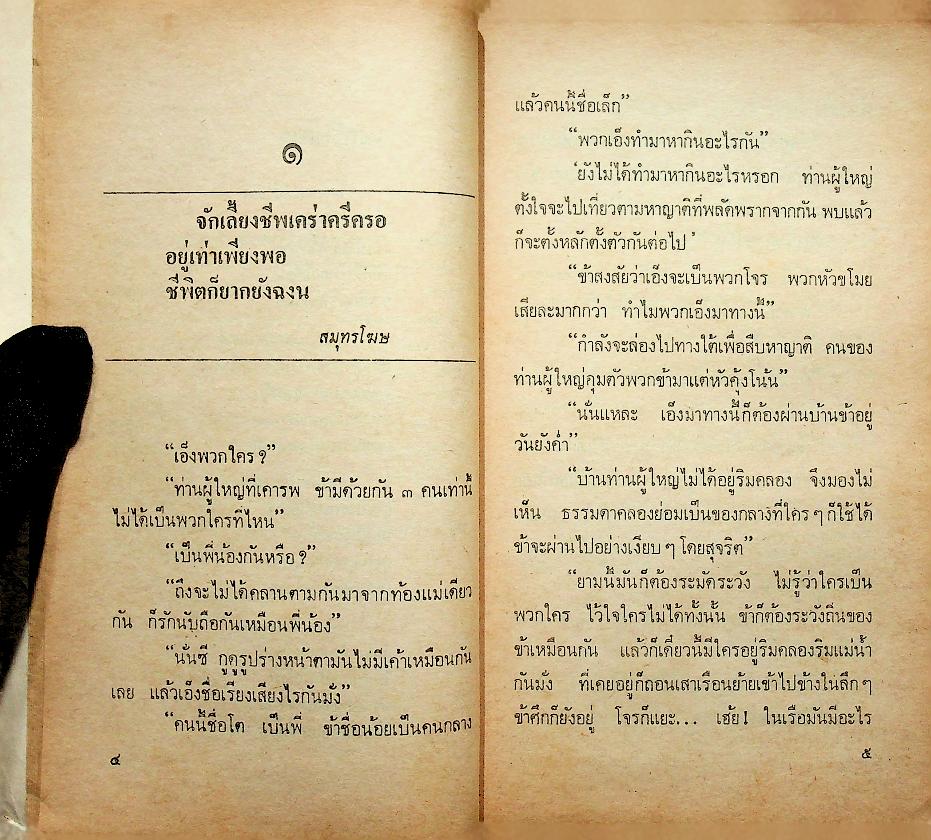 ๑
จักเลี้ยงชีพเคร่าครีครอ
อยู่เท่าเพียงพอ
ชีพิตก็ยากยังฉงน
สมุทรโฆษ
“เอ็งพวกใคร ?”
“ท่านผู้ใหญ่ที่เคารพ ข้ามีด้วยกัน ๓ คนเท่านี้
ไม่ได้เป็นพวกใครที่ไหน”
“เป็นพี่น้องกันหรือ ?”
“ถึงจะไม่ได้คลานตามกันมาจากท้องแม่เดียว
กัน ก็รักนับถือกันเหมือนพี่น้อง”
“นั่นซี กูดูรูปร่างหน้าตามันไม่มีเค้าเหมือนกัน
เลย แล้วเอ็งชื่อเรียงเสียงไรกันมั่ง”
“คนนี้ชื่อโต เป็นพี่ ข้าชื่อน้อยเป็นคนกลาง
๔
แล้วคนนี้ชื่อเล็ก”
“พวกเอ็งทำมาหากินอะไรกัน”
‘ยังไม่ได้ทำมาหากินอะไรหรอก ท่านผู้ใหญ่
ตั้งใจจะไปเที่ยวตามหาญาติที่พลัดพรากจากกัน พบแล้ว
ก็จะตั้งหลักตั้งตัวกันต่อไป ’
“ข้าสงสัยว่าเอ็งจะเป็นพวกโจร พวกหัวขโมย
เสียละมากกว่า ทำไมพวกเอ็งมาทางนี้”
“กำลังจะล่องไปทางใต้เพื่อสืบหาญาติ คนของ
ท่านผู้ใหญ่กุมตัวพวกข้ามาแต่หัวคุ้งโน้น”
“นั่นแหละ เอ็งมาทางนี้ก็ต้องผ่านบ้านข้าอยู่
วันยังค่ำ”
“บ้านท่านผู้ใหญ่ไม่ได้อยู่ริมคลอง จึงมองไม่
เห็น ธรรมดาคลองย่อมเป็นของกลางที่ใคร ๆ ก็ใช้ได้
ข้าจะผ่านไปอย่างเงียบ ๆ โดยสุจริต”
“ยามนี้มันก็ต้องระมัดระวัง ไม่รู้ว่าใครเป็น
พวกใคร ไว้ใจใครไม่ได้ทั้งนั้น ข้าก็ต้องระวังถิ่นของ
ข้าเหมือนกัน แล้วก็เดี๋ยวนี้มีใครอยู่ริมคลองริมแม่น้ำ
กันมั่ง ที่เคยอยู่ก็ถอนเสาเรือนย้ายเข้าไปข้างในลึก ๆ
ข้าศึกก็ยังอยู่ โจรก็แยะ... เฮ้ย ! ในเรือมันมีอะไร
๕